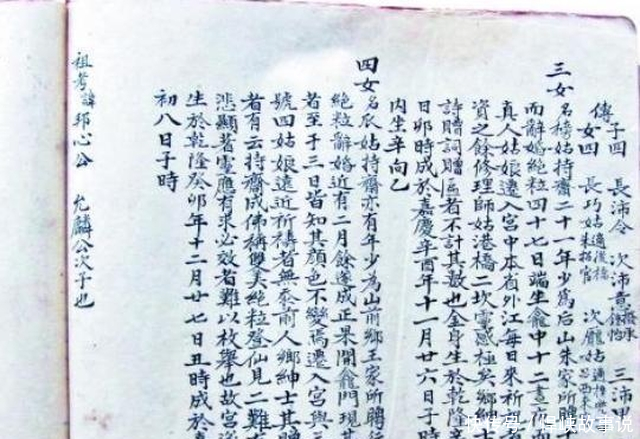 傳子四 長沛令 次沛 三沛
女四 長巧姑適後橋朱招官 次龐姑
三女名穚姑持齋二十一年少為后山朱家所聘
而辭婚絕粒四十七日端坐龕中十二晝
真人姑娘遷入宮中本省外江每日來祈
資之餘修理師姑港橋二坎靈感極矣鄉紳
詩贈詞贈匾者不計其數也金身生於乾隆
日卯時成於嘉慶辛酉年十一月廿六日子時
內生辛向乙
四女名 姑持齋亦有年少為山前鄉王家所聘
絕粒辭婚近有二月餘遂成正果閉龕門現
者至于三日皆知其顏色不變焉遷入宮與三
號四姑娘遠近祈禱者無忝前人鄉紳士其贈
者有云持齋成佛稱雙美絕粒登仙見二難
悲顯著靈應有求必效者難以枚舉也故宮
生於乾隆癸卯年十二月廿七日丑時成於嘉
初八日子時
祖考諱 心公 允麟公次子也
快传号/
故事说